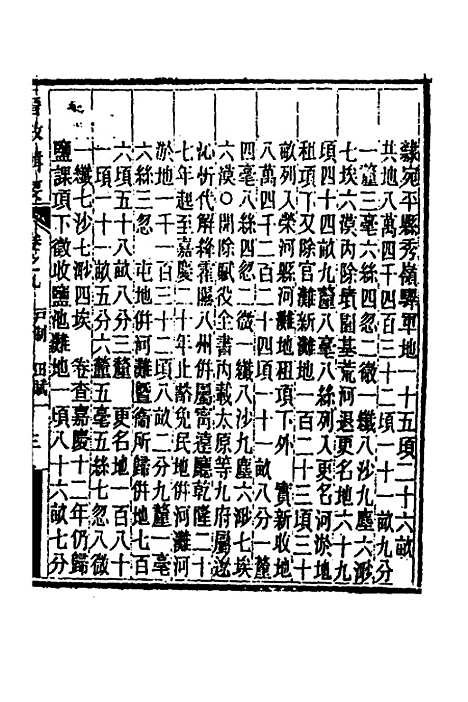 隸宛平縣秀嶺驛軍地一十五頃二十六畝
共地八萬四千四百三十二頃一十一畝九分
一釐三毫六絲四忽二微一纖八沙九塵六渺
七埃六漠內除墳園基荒河退更名地六十九
頃四十四畝九釐八毫八絲列入更名河淤地
租項丁又除官灘新灘地一百二十三頃三十
畝列入榮河縣河灘地租項下外　實新收地
八萬四千二百二十四頃一十一畝八分一釐
四毫八絲四忽二微一纖八沙九塵六渺七埃
六漠○開除賦役全書內載太原等九府屬遼
沁忻代解絳霍隰八州併屬甯遠廳乾隆二十
七年起至嘉慶二十年止豁免民地併河灘河
淤地一千一百三十二頃八畝二分九釐一毫
六絲三忽　屯地併河灘暨衞所歸併地七百
六頃五十八畝八分三釐　更名地一百八十
一頃一十一畝五分六釐五毫五絲七忽八微
一纖七沙七渺四埃　卷查嘉慶十二年仍歸
鹽課項下徵收鹽池灘地一頃八十六畝七分
晉政輯要　卷之九　戶制　田賦一　三